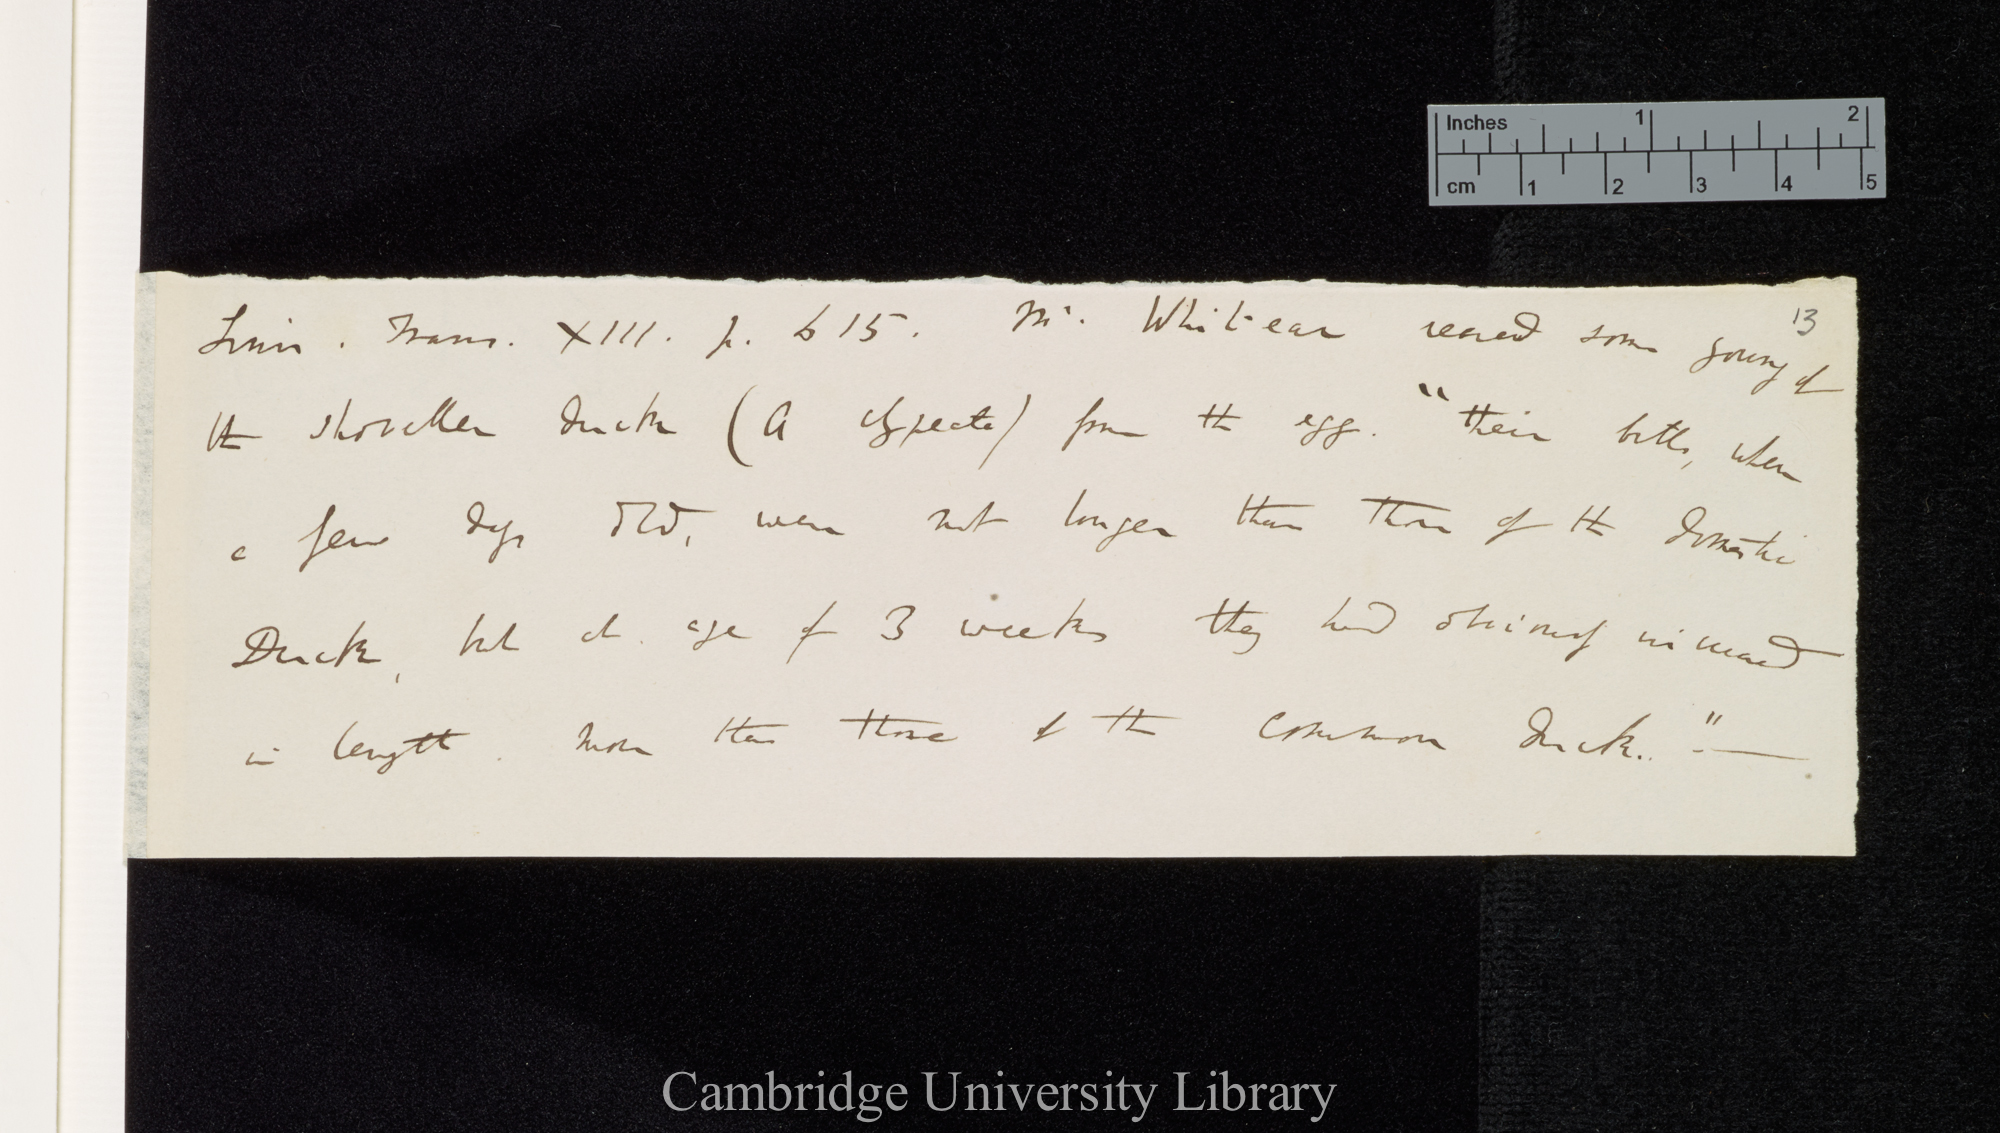 Inches 1 2
cm 1 2 3 4 5
13
Linn. Trans. XIII. p. 615. Mr. Whitear reared some young of
the shoveller duck (A clypeata) from the egg. "their bills, when
a few days old, were not longer than those of the domestic
Duck, but at age of 3 weeks they had obviously increased
in length more than those of the common duck." —
Cambridge University Library